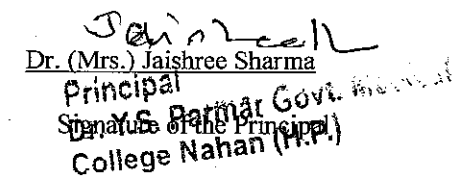 Dr. (Mrs.) Jaishree Sharma
Principal
Dr. Y.S. Parmar Govt. Medical
Signature of the Principal
College Nahan (H.P.)